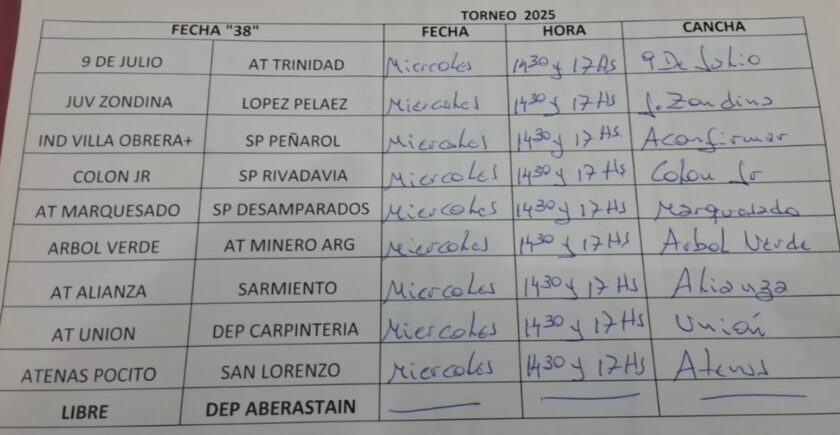 TORNEO 2025
FECHA "38" FECHA HORA CANCHA
9 DE JULIO AT TRINIDAD Miercoles 14 30 y 17 Hs 9 De Julio
JUV ZONDINA LOPEZ PELAEZ Miercoles 14 30 y 17 Hs J. Zondina
IND VILLA OBRERA+ SP PEÑAROL Miercoles 14 30 y 17 Hs. A confirmar
COLON JR SP RIVADAVIA Miercoles 14 30 y 17 Hs Colon Jr
AT MARQUESADO SP DESAMPARADOS Miercoles 14 30 y 17 Hs Marquesado
ARBOL VERDE AT MINERO ARG Miercoles 14 30 y 17 Hs Arbol Verde
AT ALIANZA SARMIENTO Miercoles 14 30 y 17 Hs Alianza
AT UNION DEP CARPINTERIA Miercoles 14 30 y 17 Hs Unión
ATENAS POCITO SAN LORENZO Miercoles 14 30 y 17 Hs Atenas
LIBRE DEP ABERASTAIN